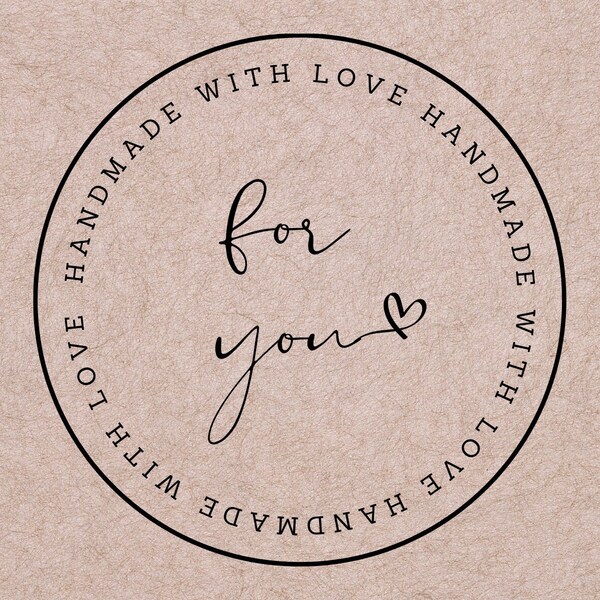 HANDMADE WITH LOVE HANDMADE WITH LOVE HANDMADE WITH LOVE
for
you